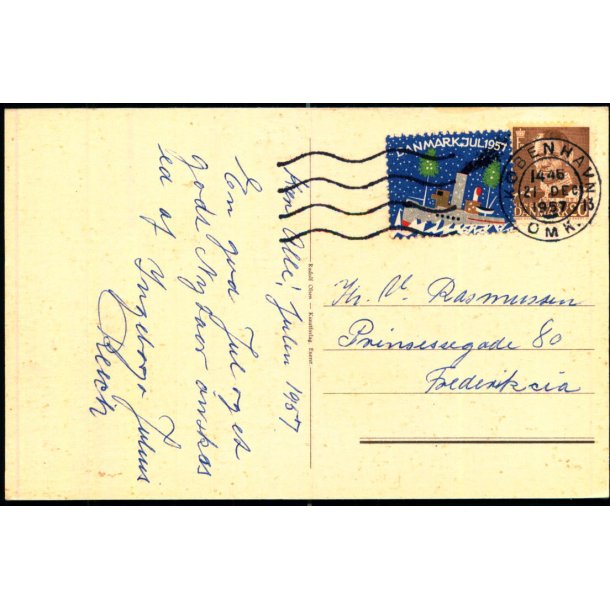 DANMARK JUL 1957
KØBENHAVN
1446
21 DEC
1957
OMK.
Hr. V. Rasmussen
Prinsessegade 80
Fredericia
Rudolf Olsen — Kunstforlag. Eneret.
Kære Alle! Julen 1957.
En god Jul og et
godt Nytaar ønskes
ed af Ingeborg Julius